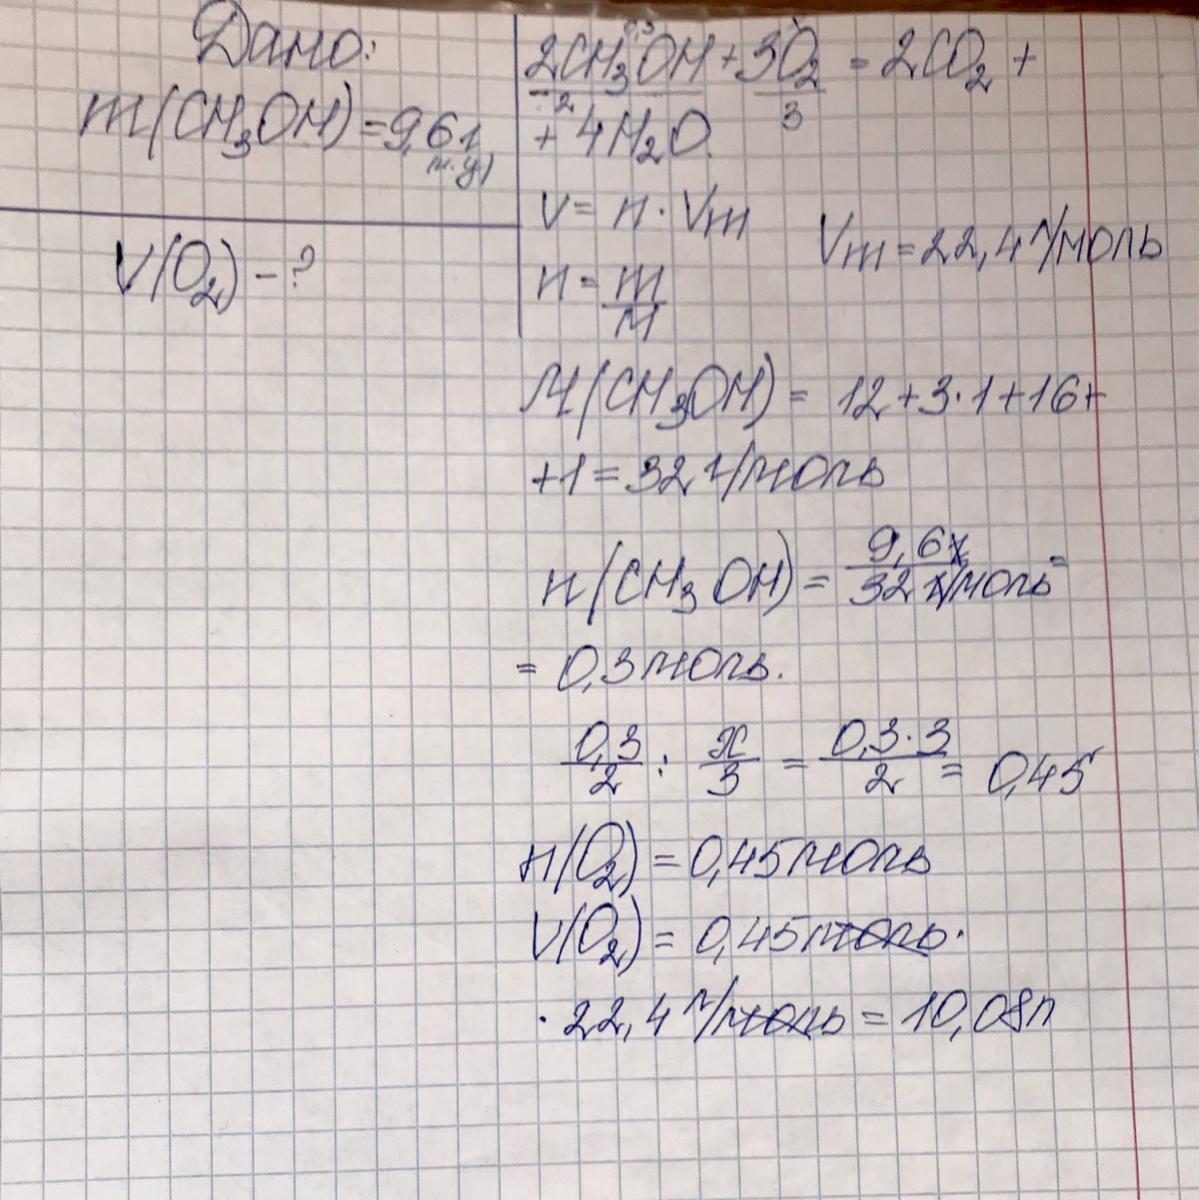 Дано:
m(CH3OH)=9,6г
(н.у)
V(O2)-?
0,3 x
2CH3OH+3O2=2CO2+
2 3
+4H2O.
V=n·Vm
Vm=22,4л/моль
n=m/M
M(CH3OH)=12+3·1+16+
+1=32г/моль
n(CH3OH)=9,6г/32г/моль=
=0,3моль.
0,3/2:x/3=0,3·3/2=0,45
n(O2)=0,45моль
V(O2)=0,45моль·
·22,4л/моль=10,08л